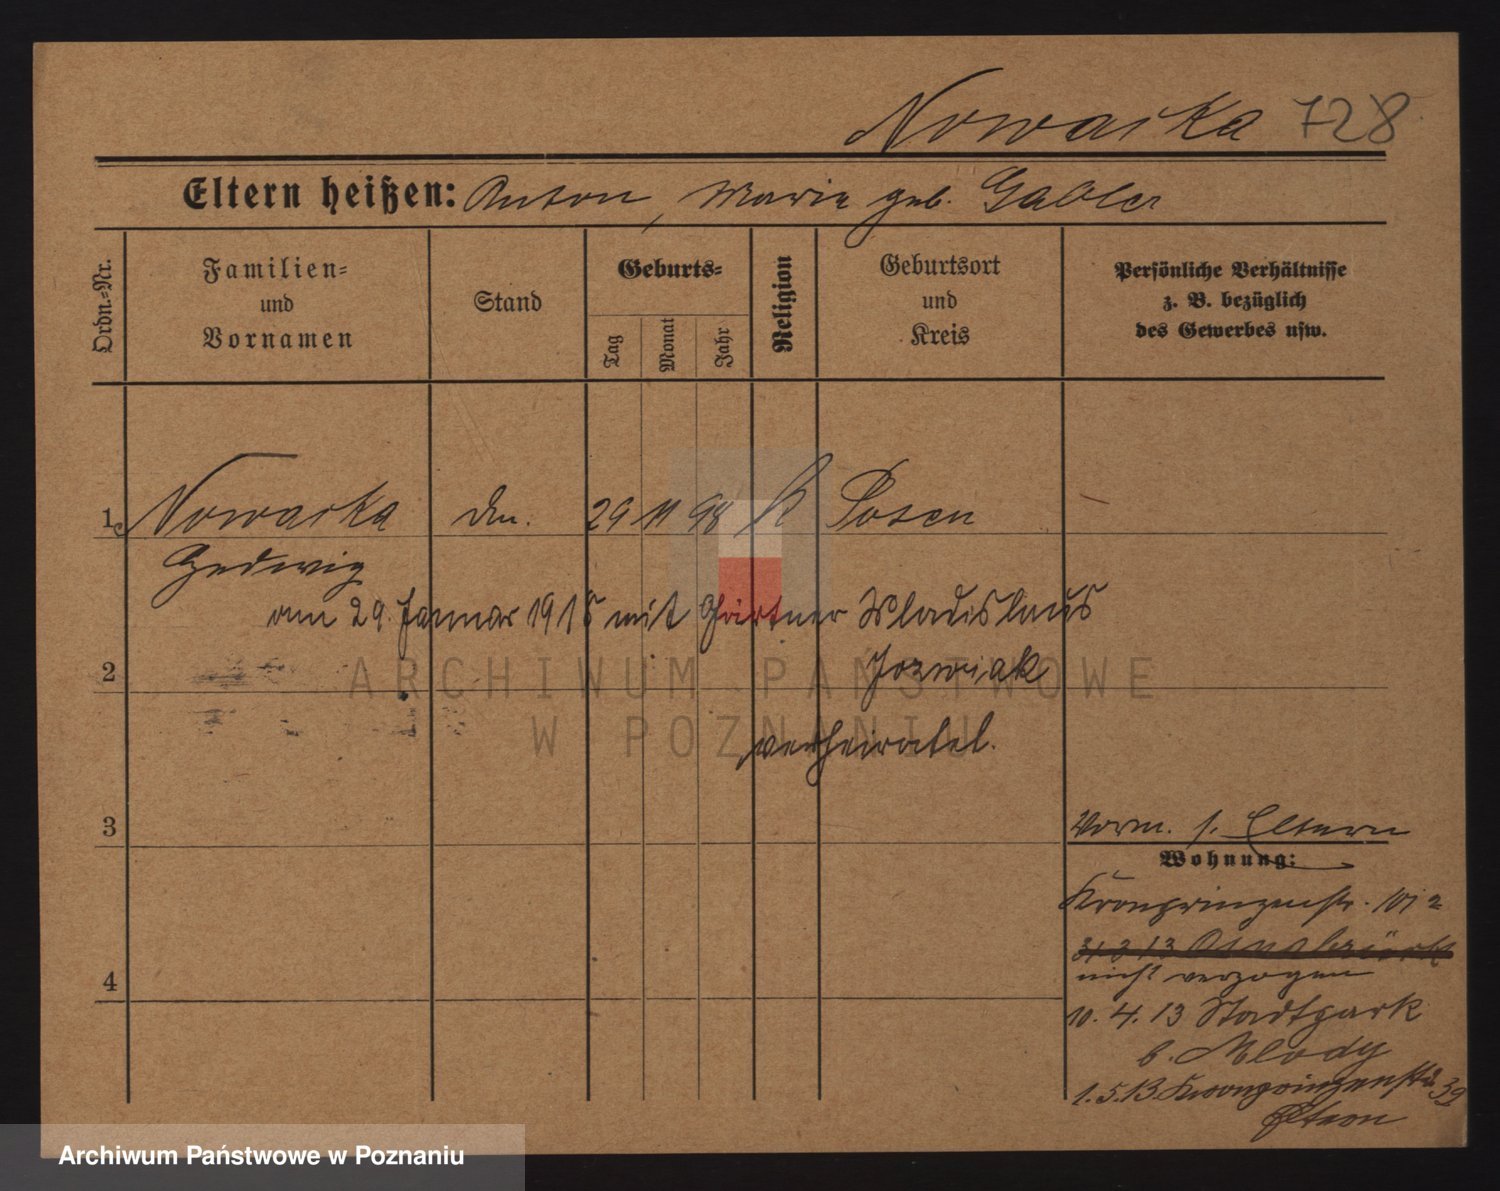 Nowacka 728
Eltern heißen: Anton, Marie geb. Gabler
Ordn.-Nr.
Familien-
und
Vornamen
Stand
Geburts-
Tag
Monat
Jahr
Religion
Geburtsort
und
Kreis
Persönliche Verhältnisse
z. B. bezüglich
des Gewerbes usw.
1 Nowacka 29 11 98 K Posen
Hedwig
am 29. Januar 1918 mit Gärtner Wladislaus
2 Jozwiak
verheiratet.
ARCHIWUM PAŃSTWOWE
W POZNANIU
3
Vorm. s. Eltern
Wohnung:
Kronprinzenstr. 101 a
31 3 13 Osnabrück
nicht verzogen
4
10. 4. 13 Stadtpark
b. Mlody
1. 5. 13 Kronprinzenstr. 39
Eltern
Archiwum Państwowe w Poznaniu